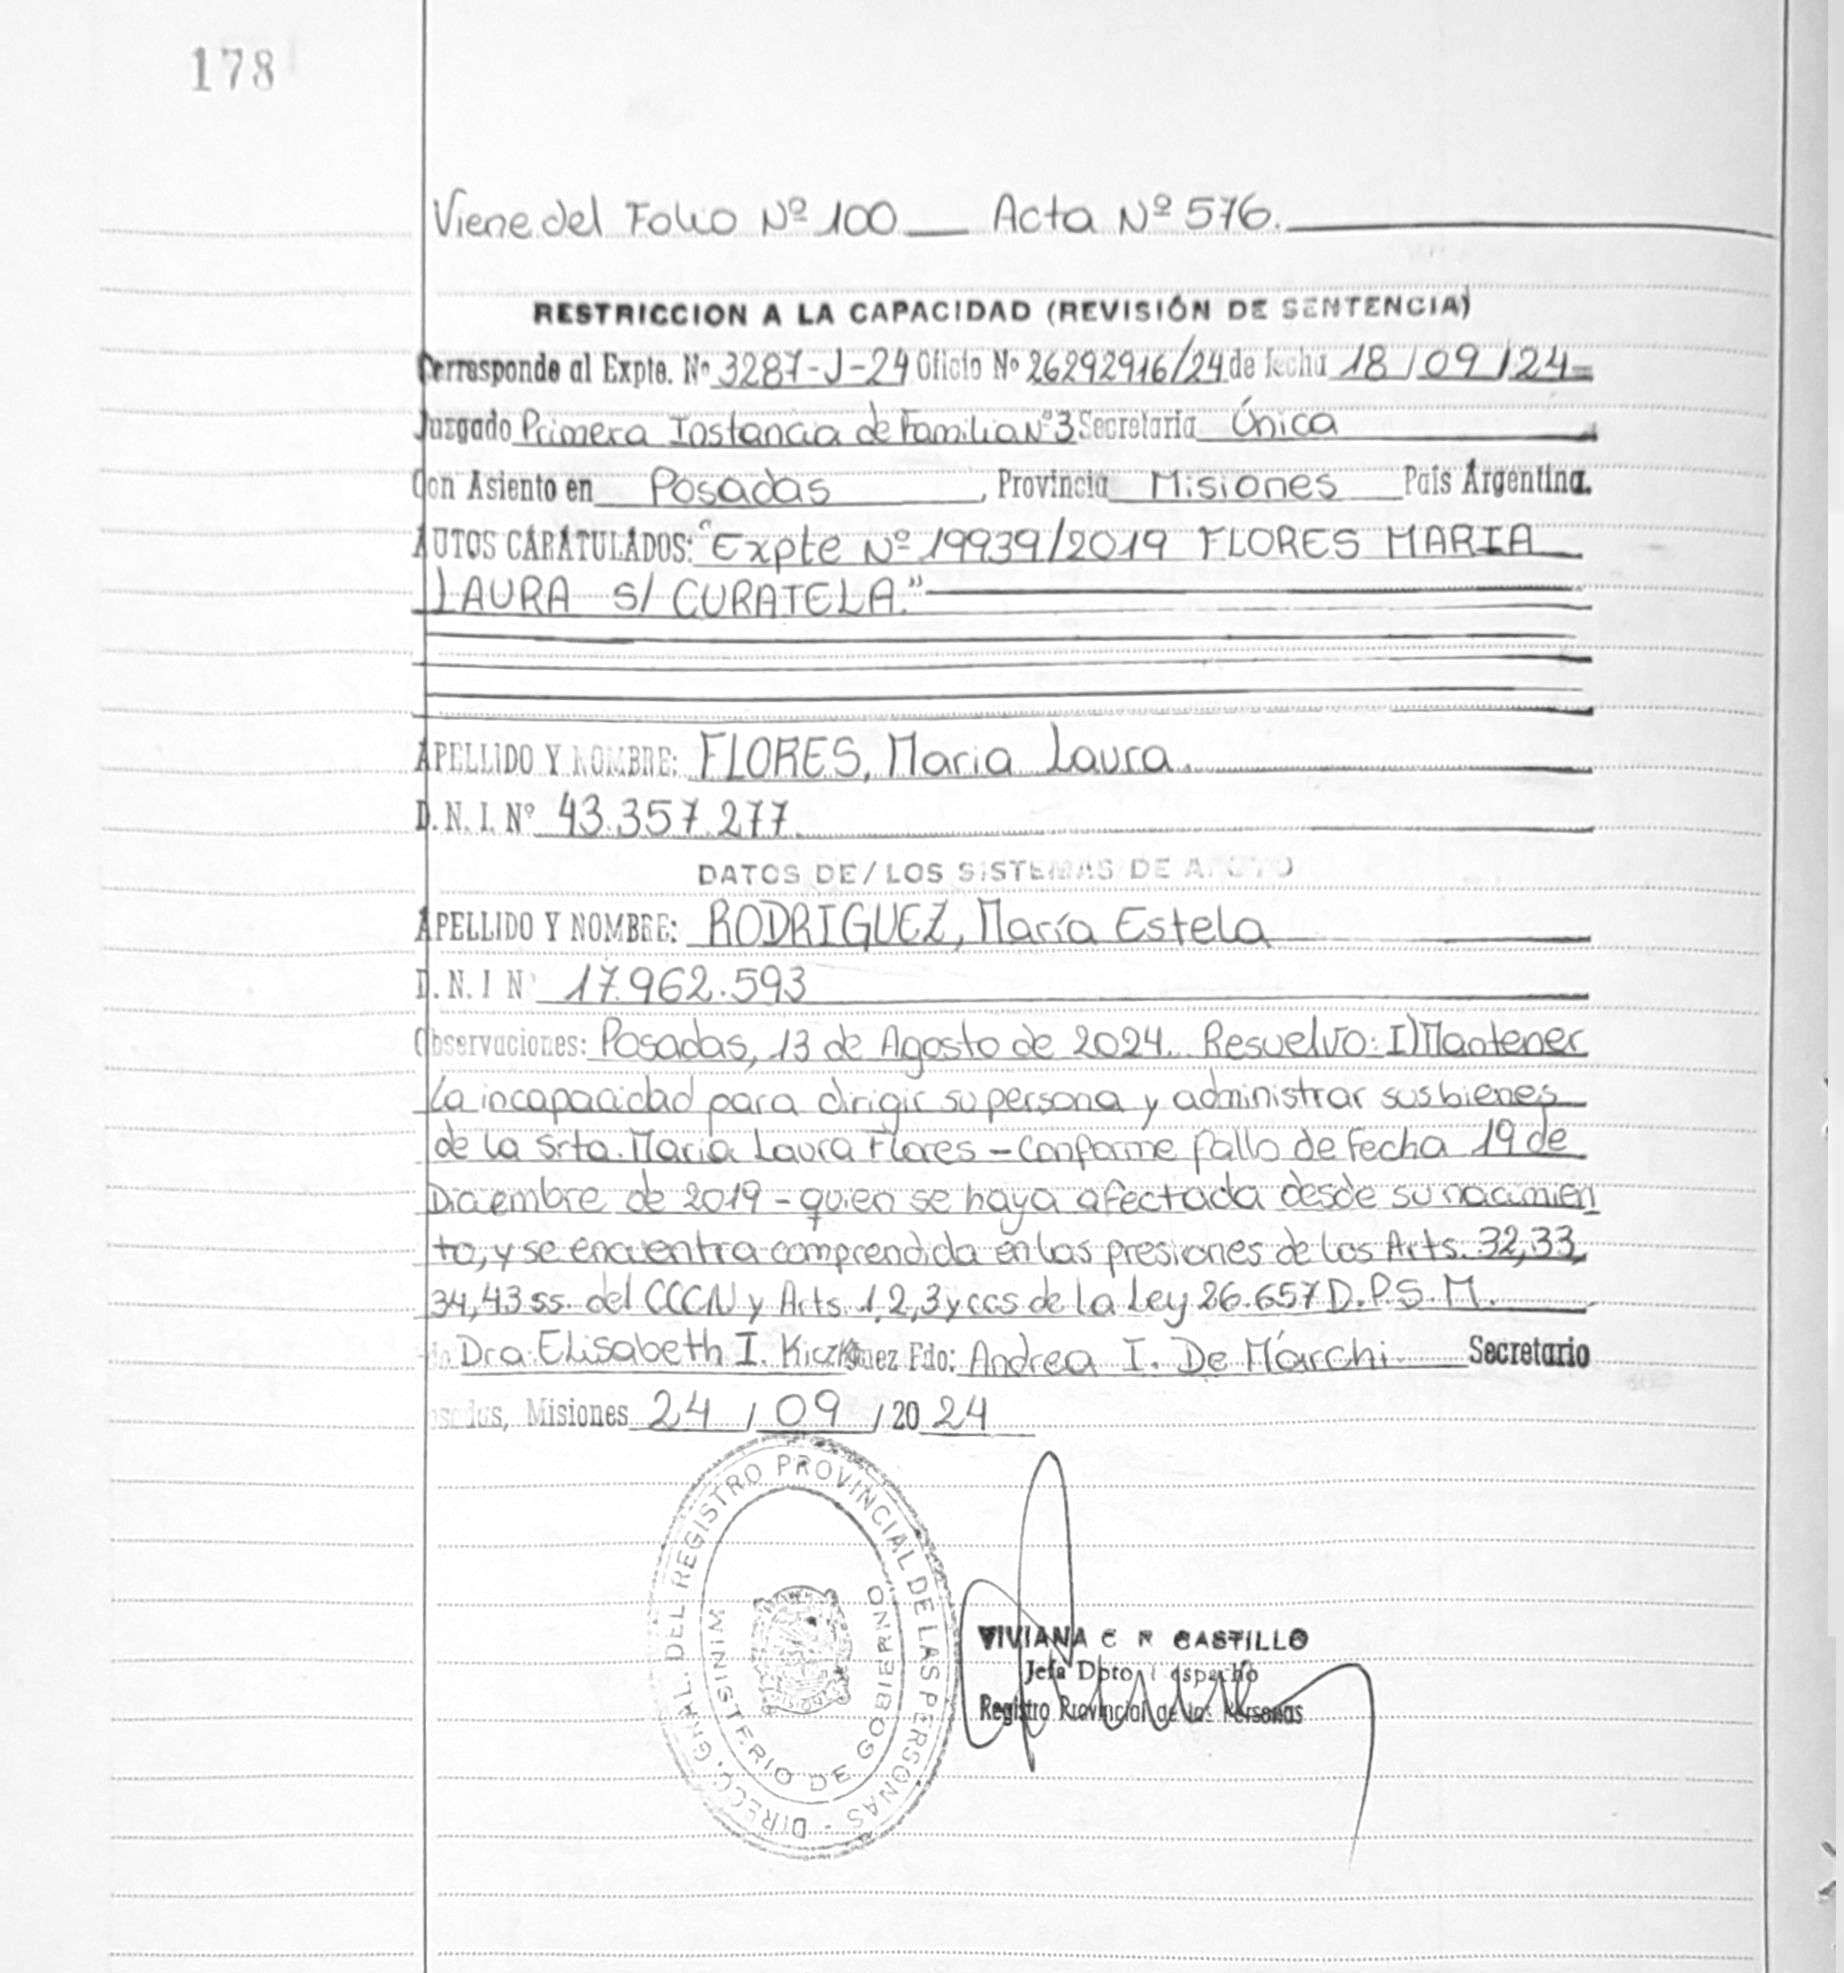 178
Viene del Folio Nº 100 Acta Nº 576.
RESTRICCION A LA CAPACIDAD (REVISIÓN DE SENTENCIA)
Corresponde al Expte. Nº 3287-J-24 Oficio Nº 26292916/24 de fecha 18/09/24
Juzgado Primera Instancia de Familia Nº 3 Secretaria Única
Con Asiento en Posadas, Provincia Misiones País Argentina.
AUTOS CARATULADOS: "Expte Nº 19939/2019 FLORES MARIA
LAURA S/ CURATELA."
APELLIDO Y NOMBRE: FLORES, Maria Laura.
D.N.I. Nº 43.357.277.
DATOS DE/LOS SISTEMAS DE APOYO
APELLIDO Y NOMBRE: RODRIGUEZ, María Estela
D.N.I Nº 17.962.593
Observaciones: Posadas, 13 de Agosto de 2024. Resuelvo: I) Mantener
la incapacidad para dirigir su persona y administrar sus bienes
de la Srta. Maria Laura Flores - conforme fallo de Fecha 19 de
Diciembre de 2019 - quien se haya afectada desde su nacimien
to, y se encuentra comprendida en las presiones de los Arts. 32,33,
34,43 ss. del CCCN y Arts. 1,2,3 y ccs de la Ley 26.657 D.P.S.M.
Dra. Elisabeth I. Juez Fdo: Andrea I. De Márchi Secretario
Posadas, Misiones 24/09/2024
DIRECC. GRAL. DEL REGISTRO PROVINCIAL DE LAS PERSONAS -
MINISTERIO DE GOBIERNO
VIVIANA C R CASTILLO
Jefa Dpto Despacho
Registro Provincial de las Personas